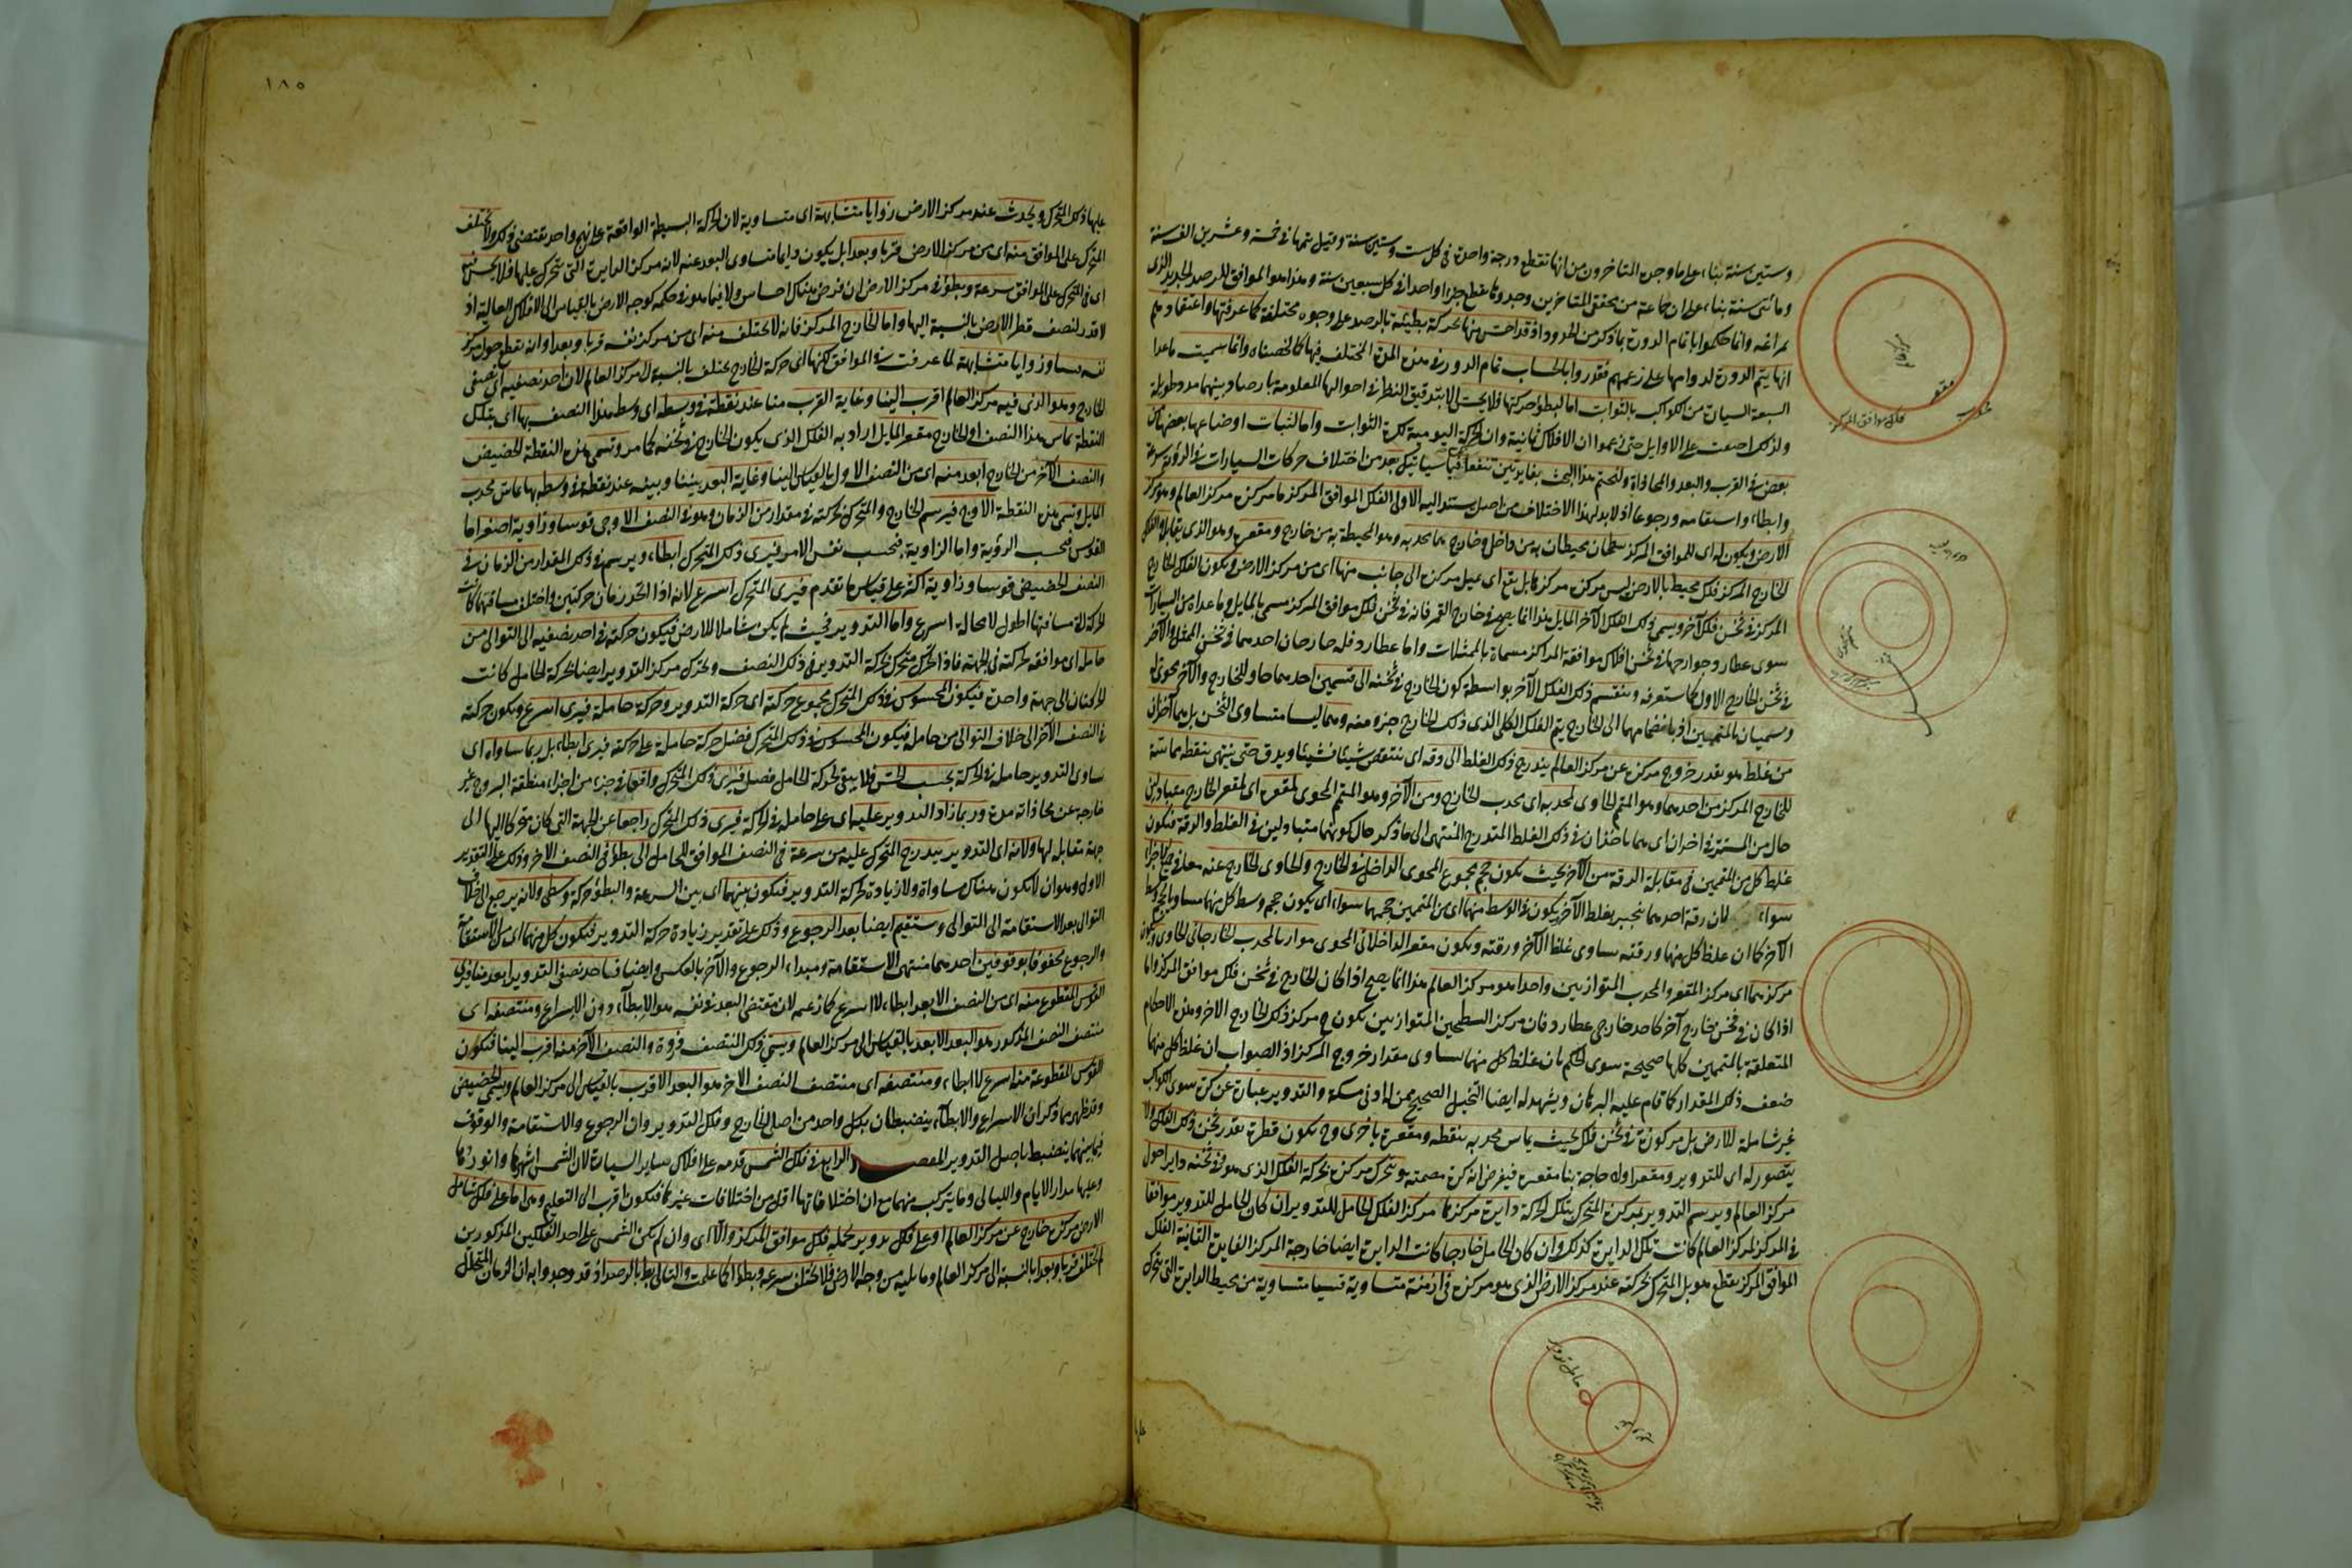 وستين سنة بناء على ما وجده المتأخرون من انها تقطع درجة واحدة في كل ست وستين سنة وقيل يتمها في خمسة وعشرين الف سنة
ومائتى سنة بناء على ان جماعة من محققى المتأخرين وجدوها تقطع جزءا واحدا في كل سبعين سنة وهذا هو الموافق للرصد الجديد الذى
بمراغه وانما حكموا باتمام الدورة بما ذكر من الحدود اذ قد احس منها بحركة بطيئة بالرصد على وجوه مختلفة كما عرفتها واعتقادهم
انها يتم الدورة لدوامها على زعمهم فقدروا بالحساب تمام الدورة في هذه المدة المختلف فيها كما لخصناه وانما سميت ما عدا
السبعة السيارة من الكواكب بالثوابت اما لبطؤ حركتها فلا يحس الا بتدقيق النظر في احوالها المعلومة بارصاد بينها مدد طويلة
ولذلك اجمعت على الاوايل حتى زعموا ان الافلاك ثمانية وان الحركة اليومية لكرة الثوابت واما لثبات اوضاعها بعضها من
بعض في القرب والبعد والمحاذاة ولنختم هذا البحث بفايدتين تنفعا فيما سياتيك بعد من اختلاف حركات السيارات في الرؤية سرعة
وابطاء واستقامه ورجوعا اذ لا بد لهذا الاختلاف من اصل يستند اليه الاولى الفلك الموافق المركز ما مركزه مركز العالم وهو مركز
الارض ويكون له اى للموافق المركز سطحان يحيطان به من داخل وخارج هما محدبه وهو المحيطة به من خارج ومقعره وهو الذى يقابله والفلك
الخارج المركز فلك محيط بالارض ليس مركزه مركزها بل يقع اى يميل مركزه الى جانب منها اى من مركز الارض ويكون الفلك الخارج
المركز في ثخن فلك آخر ويسمى ذلك الفلك الآخر المايل هذا انما يصح في خارج القمر فانه في ثخن فلك موافق المركز مسمى بالمايل وما عداه من السيارات
سوى عطارد خوارجها في ثخن افلاك موافقة المراكز مسماة بالممثلات واما عطارد فله خارجان احدهما في ثخن الممثل والآخر
في ثخن الخارج الاول كما ستعرفه وينقسم ذلك الفلك الآخر بواسطة كون الخارج في ثخنه الى قسمين احدهما حاو للخارج والآخر محوى له
وسميان بالمتممين اذ بانضمامهما الى الخارج يتم الفلك الكلى الذى ذلك الخارج جزء منه وهما ليسا متساوى الثخن بل هما آخذان
من غلظ هو بقدر خروج مركزه عن مركز العالم يتدرج ذلك الغلظ الى رقه اى ينتقص شيئا فشيئا ويدق حتى ينتهى بنقطة مماسة
للخارج المركز من احدهما وهو المتمم الحاوى لمحدبه اى محدب الخارج ومن الآخر وهو المتمم المحوى لمقعره اى لمقعر الخارج متبادلين
حال من المستتر في اخذان اى هما ياخذان في ذلك الغلظ المتدرج المنتهى الى ما ذكر حال كونهما متبادلين في الغلظ والرقة فيكون
غلظ كل من المتممين في مقابلة الرقة من الآخر بحيث يكون حجم مجموع المحوى الداخل في الخارج والحاوى الخارج عنه معا في جميع الاجزاء
سواء لان رقة احدهما ينجبر بغلظ الآخر يكون في الوسط منهما اى من المتممين حجمهما سواء اى يكون حجم وسط كل منهما مساويا لحجم وسط
الآخر كما ان غلظ كل منهما ورقته يساوى غلظ الآخر ورقته ويكون مقعر الداخلانى المحوى موازيا لمحدب الخارجانى الحاوى ويكون
مركزهما اى مركز المقعر والمحدب المتوازيين واحدا هو مركز العالم هذا انما يصح اذا كان الخارج في ثخن فلك موافق المركز واما
اذا كان في ثخن خارج آخر كاحد خارجى عطارد فان مركز السطحين المتوازيين يكون ح مركز ذلك الخارج الاخر وهذه الاحكام
المتعلقة بالمتممين كلها صحيحة سوى الحكم بان غلظ كل منهما يساوى مقدار خروج المركز اذ الصواب ان غلظ كل منهما
ضعف ذلك المقدار كما قام عليه البرهان ويشهد له ايضا التخيل الصحيح ممن له ادنى مسكة والتدوير عبارة عن كرة سوى الكواكب
غير شاملة للارض بل مركوزة في ثخن فلك بحيث يماس محدبه بنقطه ومقعره باخرى وح يكون قطره بقدر ثخن ذلك الفلك ولا
يتصور له اى للتدوير ومقعر اوله حاجة بنا مقعره فيفرض انه كرة مصمتة يتحرك مركزه بحركة الفلك الذى هو في ثخنه دايرا حول
مركز العالم ويرسم التدوير بمركزه المتحرك بتلك الحركة دايرة مركزها مركز الفلك الحامل للتدوير ان كان الحامل للتدوير موافقا
في المركز لمركز العالم كانت تلك الدايرة كذلك وان كان الحامل خارجا كانت الدايرة ايضا خارجة المركز الفايدة الثانية الفلك
الموافق المركز يقطع هو بل المتحرك بحركته عند مركز الارض الذى هو مركزه في ازمنة متساوية قسيا متساوية من محيط الدايرة التى يتحرك
مقعر
محدب
فلك موافق المركز
حامل تدوير
عليها
١٨٥
عليها ذلك المتحرك ويحدث عند مركز الارض زوايا متشابهة اى متساوية لان الحركة البسيطة الواقعة على نهج واحد يقتضى ذلك ولا يختلف
المتحرك على الموافق منه اى من مركز الارض قربا وبعدا بل يكون دايما متساوى البعد عنه لانه مركز الدايرة التى يتحرك عليها فلا يحس منه
اى في المتحرك على الموافق سرعة وبطؤ في مركز الارض ان فرض هناك احساس ولا فيما هو في حكمه كوجه الارض بالقياس الى الافلاك العالية اذ
لا قدر لنصف قطر الارض بالنسبة اليها واما الخارج المركز فانه لا يختلف منه اى من مركز نفسه قربا وبعدا وانه يقطع حول مركز
نفسه متساوز وايا متشابهة لما عرفت في الموافق لكنها اى حركة الخارج تختلف بالنسبة الى مركز العالم لان احد نصفيه اى نصفى
الخارج وهو الذى فيه مركز العالم اقرب الينا وغاية القرب منا عند نقطة في وسطه اى وسط هذا النصف بها اى بتلك
النقطة يماس هذا النصف او الخارج مقعر المايل اراد به الفلك الذى يكون الخارج في ثخنه كما مر وتسمى هذه النقطة الحضيض
والنصف الآخر من الخارج ابعد منه اى من النصف الاول بالقياس الينا وغاية البعد بيننا وبينه عند نقطة في وسطه بها يماس محدب
المايل وتسمى هذه النقطة الاوج فيرسم الخارج والمتحرك بحركته في مقدار من الزمان وهو في النصف الاوجى قوسا وزاوية اصغر اما
القوس فبحسب الرؤية واما الزاوية فبحسب نفس الامر فيرى ذلك المتحرك ابطاء ويرسم في ذلك المقدار من الزمان في
النصف الحضيضى قوسا وزاوية اكبر على قياس ما تقدم فيرى المتحرك اسرع لانه اذا اتحد زمان حركتين واختلف مسافتهما كانت
الحركة التى مسافتها اطول لا محالة اسرع واما التدوير فحيث لم يكن شاملا للارض فيكون حركته في احد نصفيه الى التوالى من
حامله اى موافقه لحركته في الجهة فاذا تحرك متحرك بحركة التدوير في ذلك النصف وتحرك مركز التدوير ايضا بحركة الحامل كانت
الحركتان الى جهة واحدة فيكون المحسوس في ذلك المتحرك مجموع حركته اى حركة التدوير وحركة حامله فيرى اسرع ويكون حركته
في النصف الآخر الى خلاف التوالى من حامله فيكون المحسوس في ذلك المتحرك فضل حركة حامله على حركته فيرى ابطاء بل ربما ساواه اى
ساوى التدوير حامله في الحركة بحسب الحس فلا يبقى لحركة الحامل فضل فيرى ذلك المتحرك واقفا في جزء من اجزاء منطقة البروج غير
خارجه عن محاذاته مدة وربما زاد التدوير عليه اى على حامله في الحركة فيرى ذلك المتحرك راجعا عن الجهة التى كان متحركا اليها الى
جهة مقابلة لها ولانه اى التدوير يتدرج المتحرك عليه من سرعة في النصف الموافق للحامل الى بطؤ في النصف الاخر وذلك على التقدير
الاول وهو ان لا يكون هناك مساواة ولا زيادة لحركة التدوير فيكون بينهما اى بين السرعة والبطؤ حركة وسطى ولانه يرجع الى خلاف
التوالى بعد الاستقامة الى التوالى ويستقيم ايضا بعد الرجوع وذلك على تقدير زيادة حركة التدوير فيكون كل منهما اى من الاستقامة
والرجوع محفوفا بوقوفين احدهما منتهى الاستقامة ومبداء الرجوع والآخر بالعكس وايضا فاحد نصفى التدوير ابعد منا فيرى
القوس المقطوع منه اى من النصف الابعد ابطاء لا اسرع كما زعمه لان مقتضى البعد في نفسه هو الابطاء دون الاسراع ومنتصفه اى
منتصف النصف المذكور هو البعد الابعد بالقياس الى مركز العالم ويسمى ذلك المنتصف ذروة والنصف الآخر منه اقرب الينا فيكون
القوس المقطوعة منه اسرع لا ابطاء ومنتصفه اى منتصف النصف الاخر هو البعد الاقرب بالقياس الى مركز العالم ويسمى الحضيض
وقد ظهر مما ذكر ان الاسراع والابطاء ينضبطان بكل واحد من اصلى الخارج وفلك التدوير وان الرجوع والاستقامة والوقوف
فيما بينهما ينضبط باصل التدوير المقصد الرابع في فلك الشمس قدمه على افلاك ساير السيارة لان الشمس اشهرها وانورها
وعليها مدار الايام والليالى وما يتركب منهما مع ان اختلافاتها اقل من اختلافات غيرها فيكون اقرب الى التعليم وهى اما على فلك شامل
الارض مركزه خارج عن مركز العالم او على فلك تدوير يحمله فلك موافق المركز والا اى وان لم تكن الشمس على احد الفلكين المذكورين
لم تختلف قربا وبعدا بالنسبة الى مركز العالم وما يليه من وجه الارض فلا تختلف سرعة وبطؤا كما علمت والتالى بط بالرصد اذ قد وجدوا به ان الزمان المتخلل